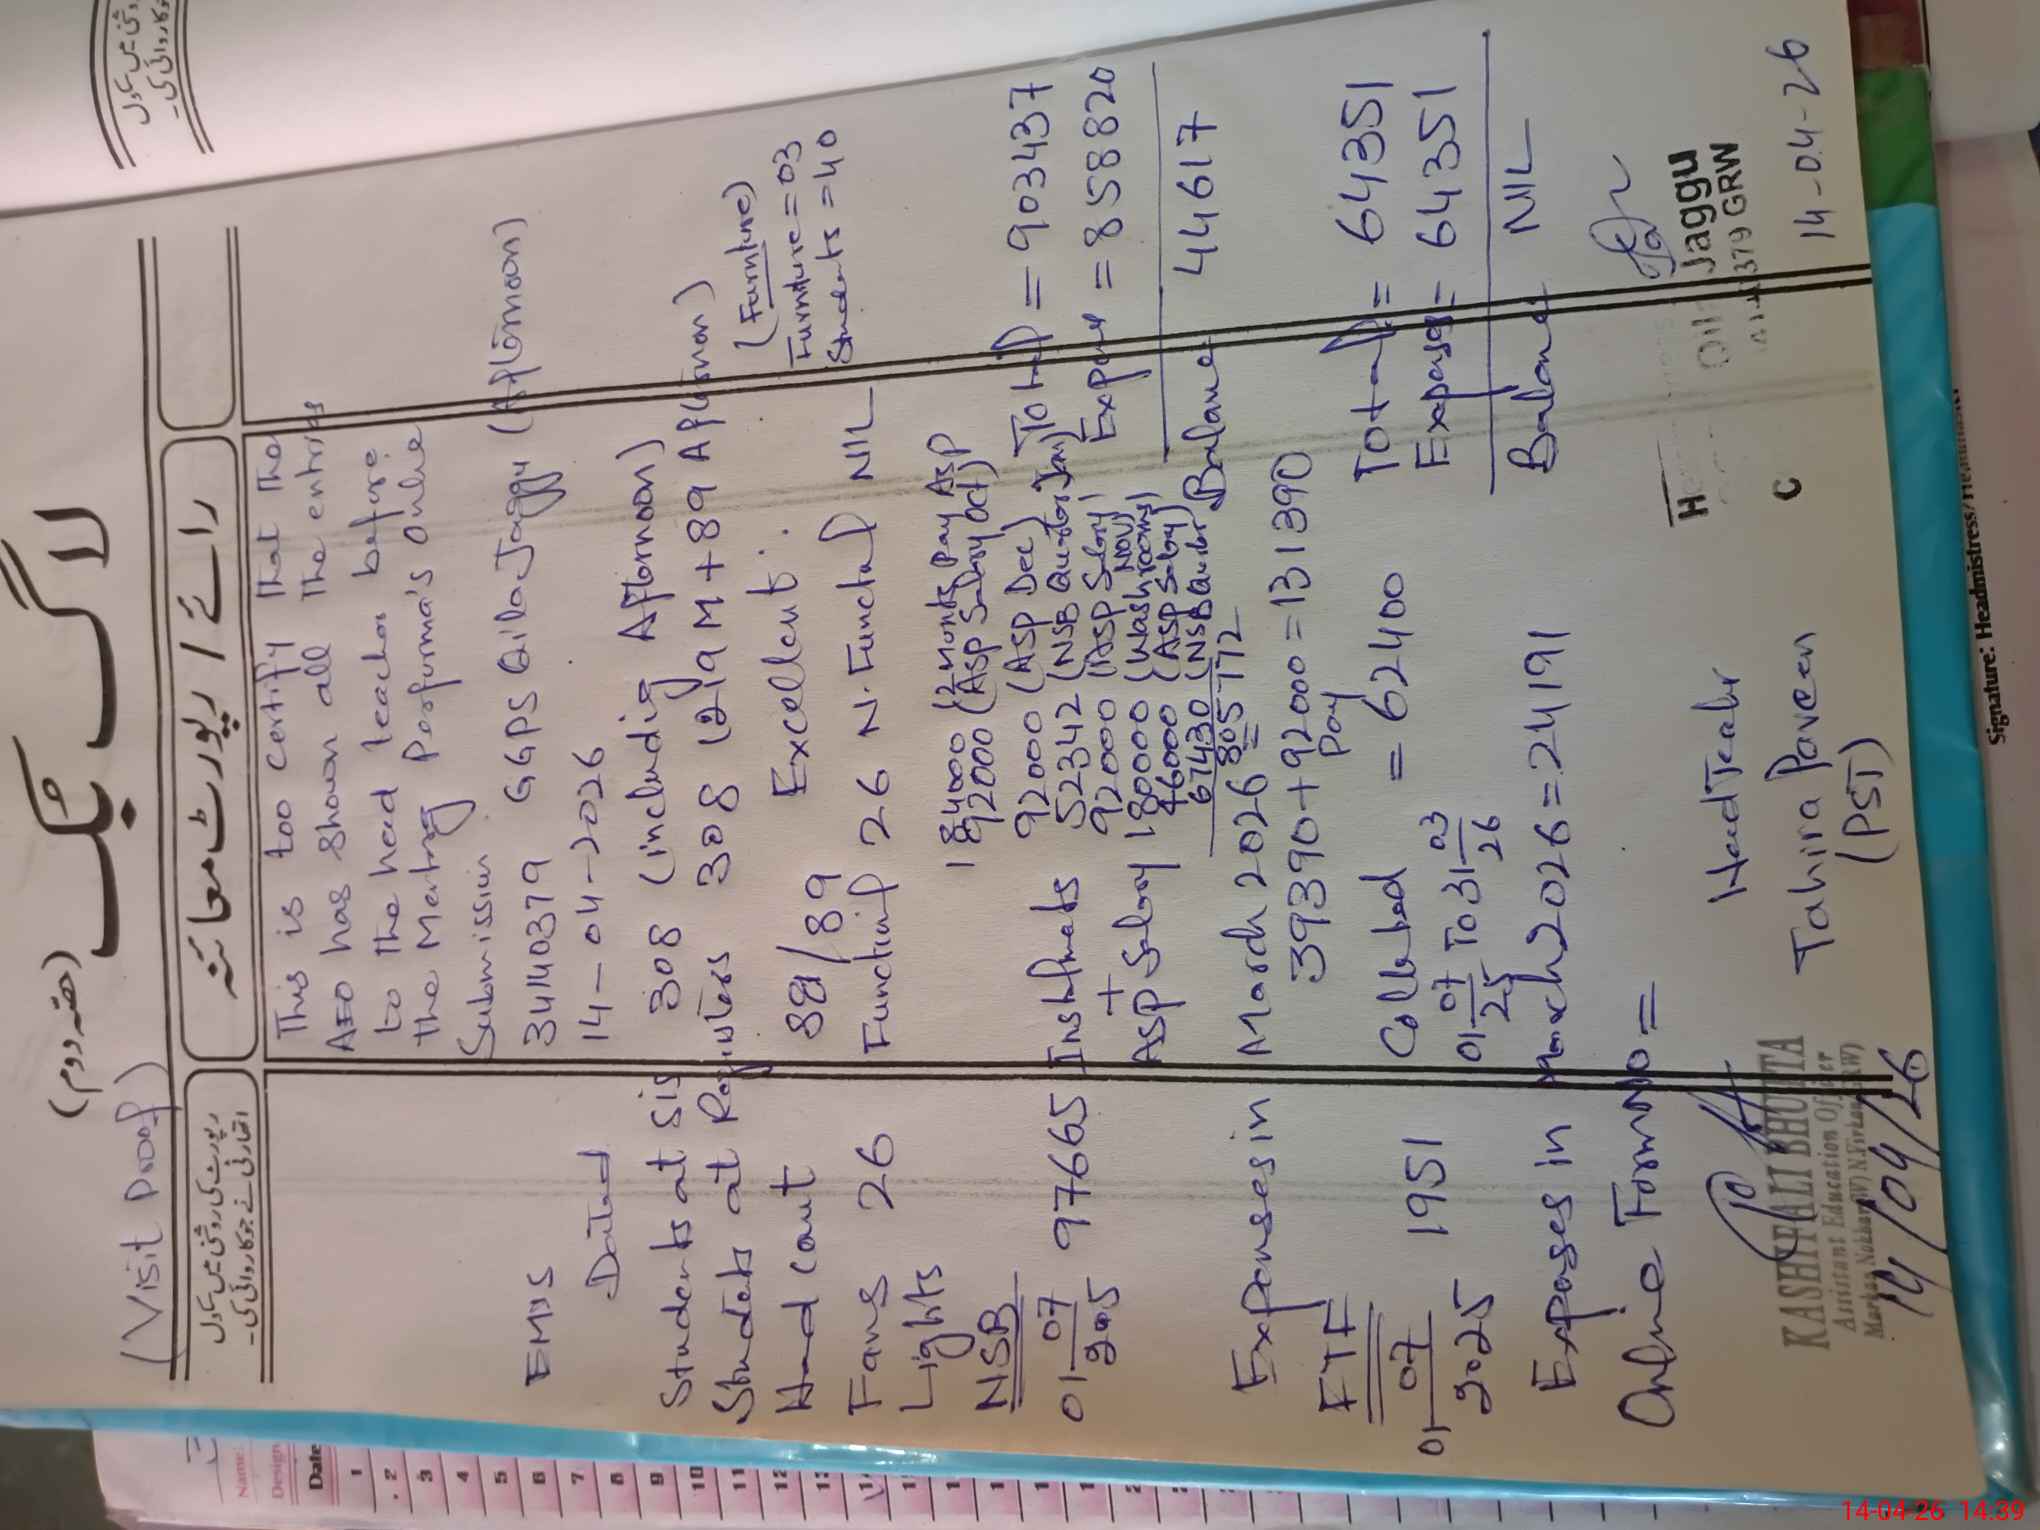 (حصہ دوم)
لاگ بک
(Visit Proof)
رپورٹ کی روشنی میں مَدِّل
اتھارٹی نے جو کاروائی کی۔
رائے / رپورٹ معائنہ
روشنی میں مَدِّل
جو کاروائی کی۔
This is too certify that the
AEO has shown all the entries
to the head teacher before
the Meeting Performa's online
Submission
EMIS 34140379 GGPS Qila Jaggu (Afternoon)
Dated 14-04-2026
Students at SIS 308 (including Afternoon)
Students at Registers 308 (219 M + 89 Afternoon)
Head Count 88/89 Excellent.
(Furniture)
Furniture = 03
Students = 40
Fans 26 Functional 26 N. Functional NIL
Lights
NSB
01-07-2025 97665 Instalments + ASP Salary
184000 (2 Months Pay ASP
92000 (ASP Salary Oct)
92000 (ASP Dec)
52342 (NSB Quarter Jan)
92000 (ASP Salary Nov)
180000 (Washrooms)
46000 (ASP Salary)
67430 (NSB Quarter)
805772
Total = 903437
Expense = 858820
Balance 44617
Expenses in March 2026
39390 + 92000 = 131390
Pay
FTF
01-07-2025 1951 Collected = 62400
01-07-25 To 31-03-26
Total = 64351
Expenses = 64351
Balance NIL
Expenses in March 2026 = 24191
Online Form No =
KASHIF ALI BHUTTA
Assistant Education Officer
14/04/26
Head Teachr
Tahira Parveen
(PST)
Jaggu
379 GRW
14-04-26
Signature: Headmistress/
Name:
Design
Date
1
2
3
4
5
6
7
8
9
10
11
12
14-04-26 14:39